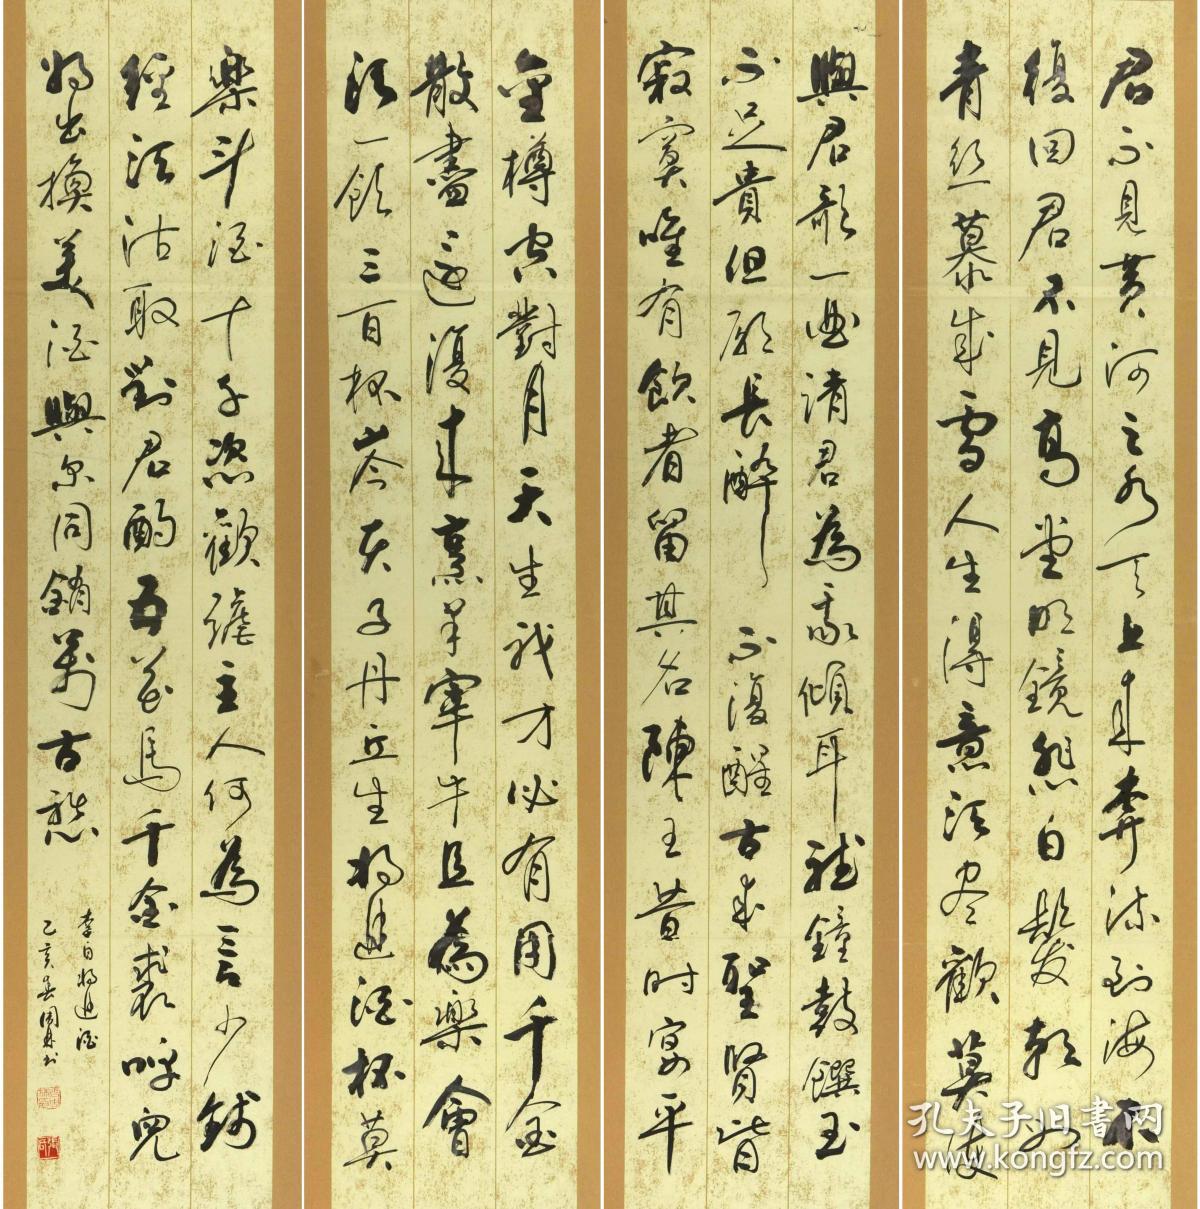 君不見黄河之水天上來奔流到海不
復回君不見高堂明鏡悲白髮朝如
青丝暮成雪人生得意須尽歡莫使
與君歌一曲請君為我傾耳聽鐘鼓饌玉
不足貴但願長醉不復醒古來聖賢皆
寂寞唯有飲者留其名陳王昔时宴平
金樽空對月天生我才必有用千金
散盡還復來烹羊宰牛且為樂會
須一飲三百杯岑夫子丹丘生将進酒杯莫
樂斗酒十千恣歡謔主人何為言少錢
經須沽取對君酌五花馬千金裘呼兒
将出換美酒與尔同銷萬古愁
李白将進酒
乙亥春
孔夫子旧书网
www.kongfz.com